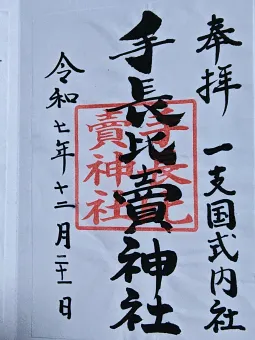 奉拝
一支国式内社
手長比賣神社
手長比
賣神社
令和七年十二月二十一日